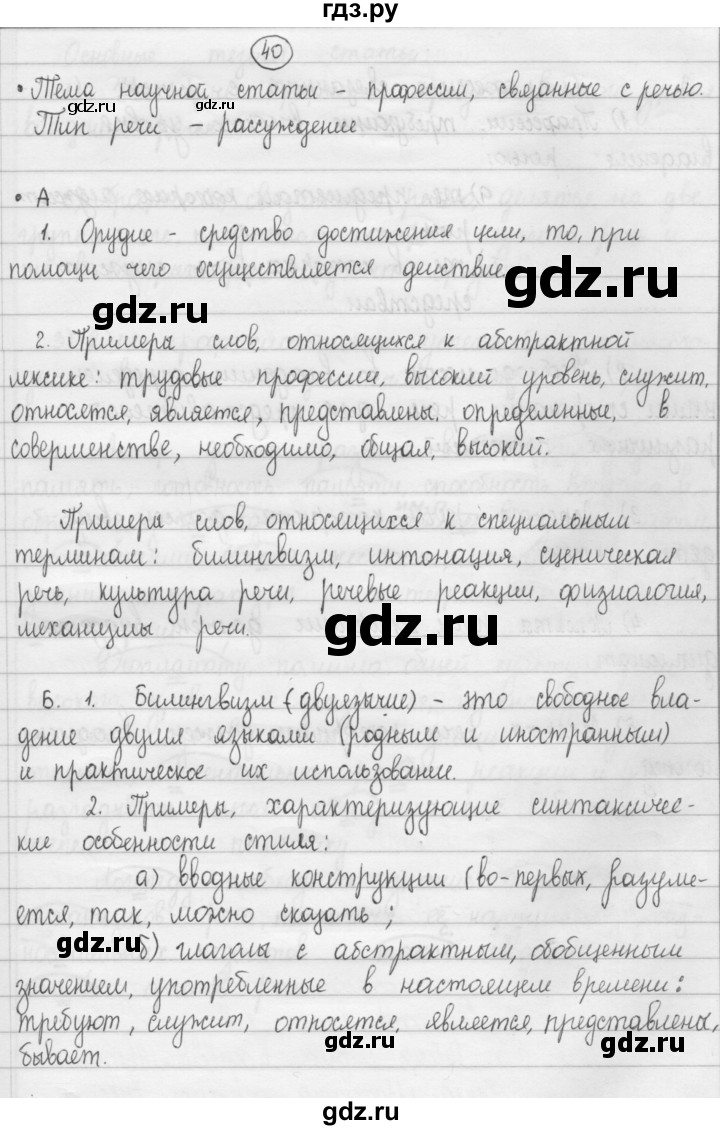 гдз.ру
40
• Тема научной статьи - профессии, связанные с речью.
gdz.ru gdz.ru
Тип речи - рассуждение
• А
1. Орудие - средство достижения цели, то, при
помощи чего осуществляется действие
gdz.ru
gdz.ru
2. Примеры слов, относящихся к абстрактной
лексике: трудовые профессии, высокий уровень, служит,
относятся, является, представлены, определенные, в
совершенстве, необходимо, общая, высокий.
gdz.ru
Примеры слов, относящихся к специальным
терминам: билингвизм, интонация, сценическая
речь, культура речи, речевые реакции, физиология,
механизмы речи.
gdz.ru
Б. 1. Билингвизм (двуязычие) - это свободное вла-
дение двумя языками (родным и иностранным)
и практическое их использование.
gdz.ru
2. Примеры, характеризующие синтаксичес-
кие особенности стиля:
а) вводные конструкции (во-первых, разуме-
gdz.ru
ется, так, можно сказать;
gdz.ru
б) глаголы с абстрактным, обобщенным
значением, употребленные в настоящем времени:
требуют, служит, относятся, является, представлены,
бывает.
gdz.ru
gdz.ru
gdz.ru